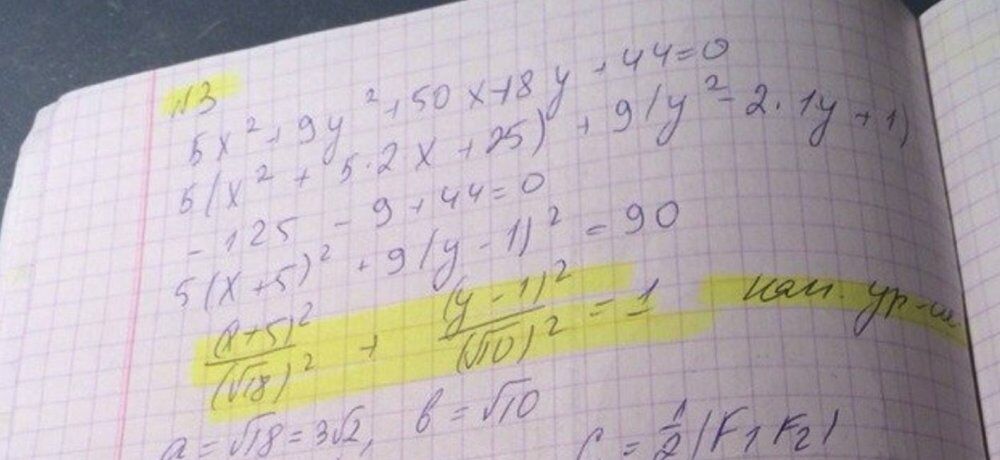 №3
5x² + 9y² + 50x - 18y + 44 = 0
5(x² + 5·2x + 25) + 9(y² - 2·1y + 1)
- 125 - 9 + 44 = 0
5(x+5)² + 9(y-1)² = 90
(x+5)²/(√18)² + (y-1)²/(√10)² = 1 кан. ур-ие
a = √18 = 3√2, b = √10
c = 1/2 |F₁F₂|